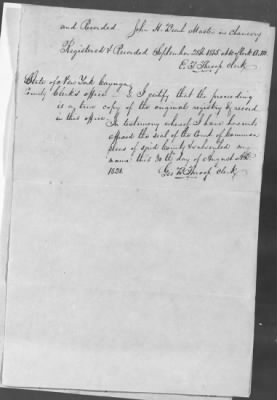 and Recorded John H. Beach Master in Chancery
Registered & Recorded September 28th 1835 at 4 o'clock P.M.
E. B. Throop clerk
State of New York Cayuga
County Clerk's office I certify that the preceeding
is a true copy of the original registry of record
in this office In testimony whereof I have hereunto
affixed the seal of the Court of Common
Pleas of said County & subscribed my
name this 30th day of August A.D.
Geo B Throop clerk